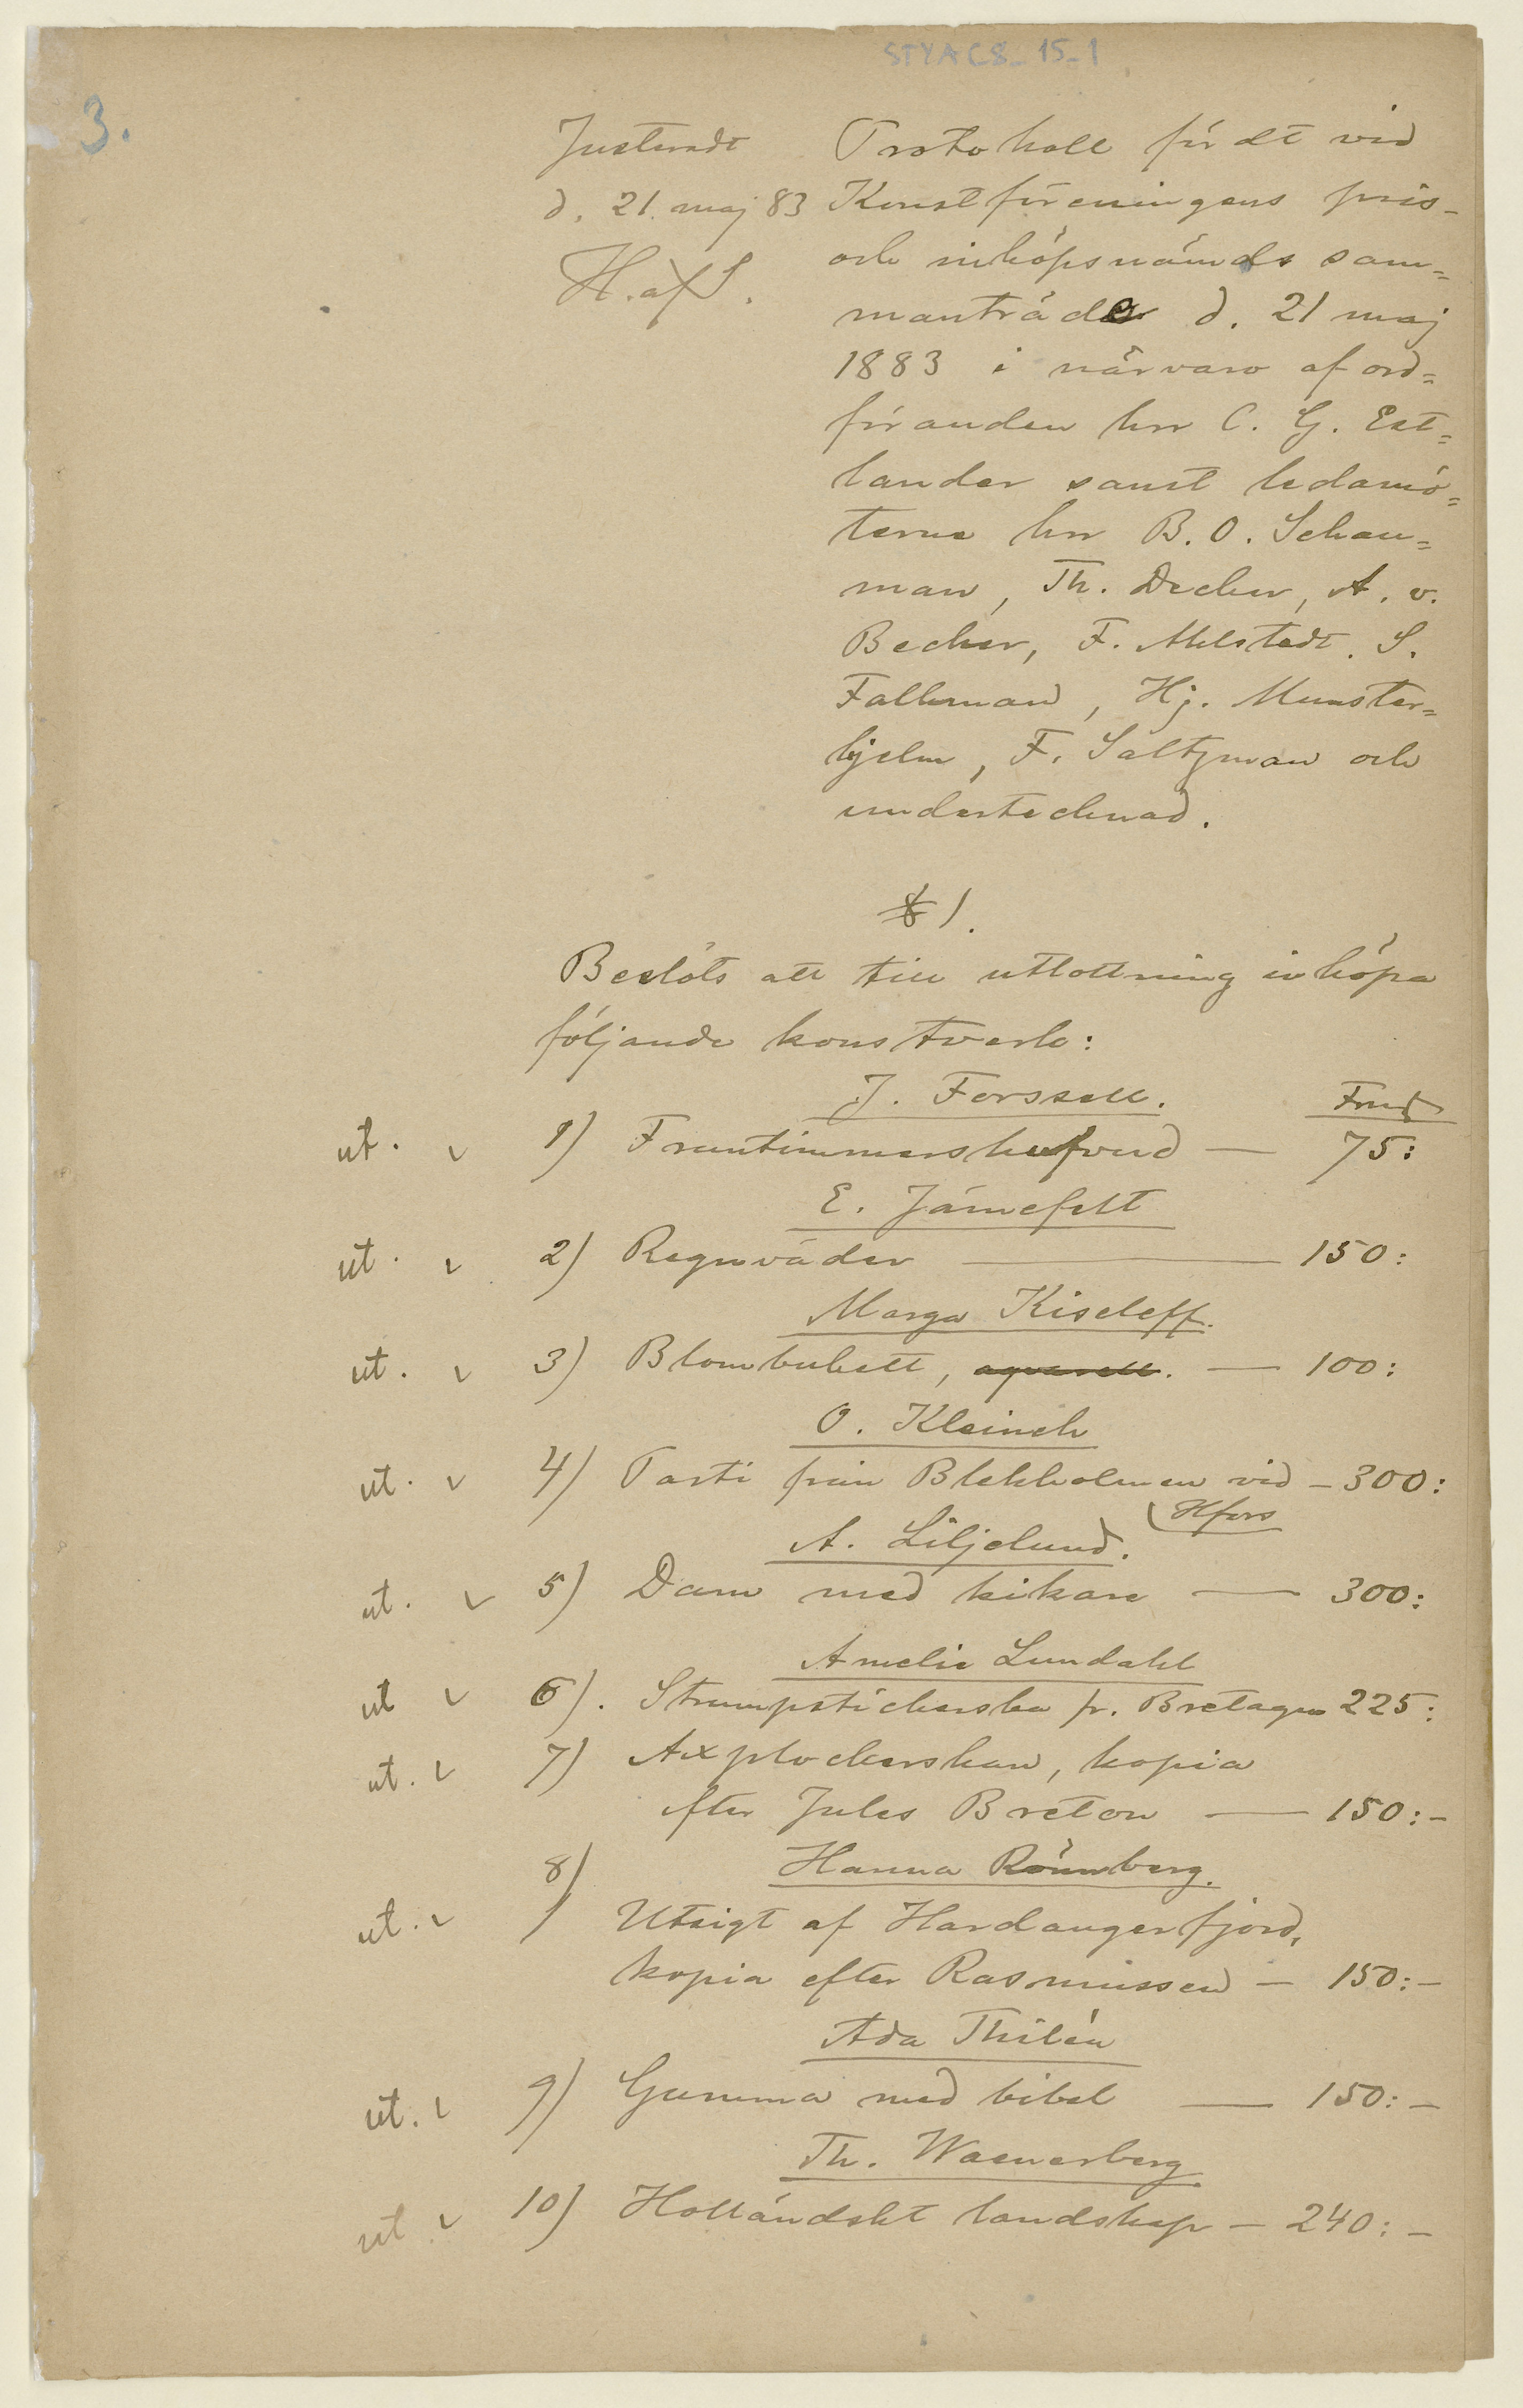 STYACS_15_1
3.
Justeradt
d. 21. maj 83
H. af S.
Protokoll fördt vid
Konstföreningens pris-
och inköpsnämds sam=
manträde d. 21 maj
1883 i närvaro af ord=
föranden hrr C. G. Est=
lander samt ledamö=
terne hrr B. O. Schau=
man, Th. Decker, A. v.
Becker, F. Ahlstedt, S.
Falkman, Hj. Munster=
hjelm, F. Saltzman och
undertecknad.
§ 1.
Beslöts att till utlottning inköpa
följande konstverk:
J. Forssell. Fmk
ut. 1) Fruntimmershufvud — 75:
E. Järnefelt
ut. 2) Regnväder — 150:
Marga Kiseleff.
ut. 3) Blombukett, aqvarell. — 100:
O. Kleineh
ut. 4) Parti från Blekholmen vid – 300:
Hfors
A. Liljelund.
ut. 5) Dam med kikare — 300:
Amelie Lundahl
ut 6). Strumpstickerska fr. Bretagne 225:
ut. 7) Axplockerskan, kopia
efter Jules Breton — 150:–
8) Hanna Rönnberg.
ut. Utsigt af Hardangerfjord,
kopia efter Rasmussen – 150:–
Ada Thilén
ut. 9) Gumma med bibel — 150:–
Th. Waenerberg
ut 10) Holländskt landskap – 240:–